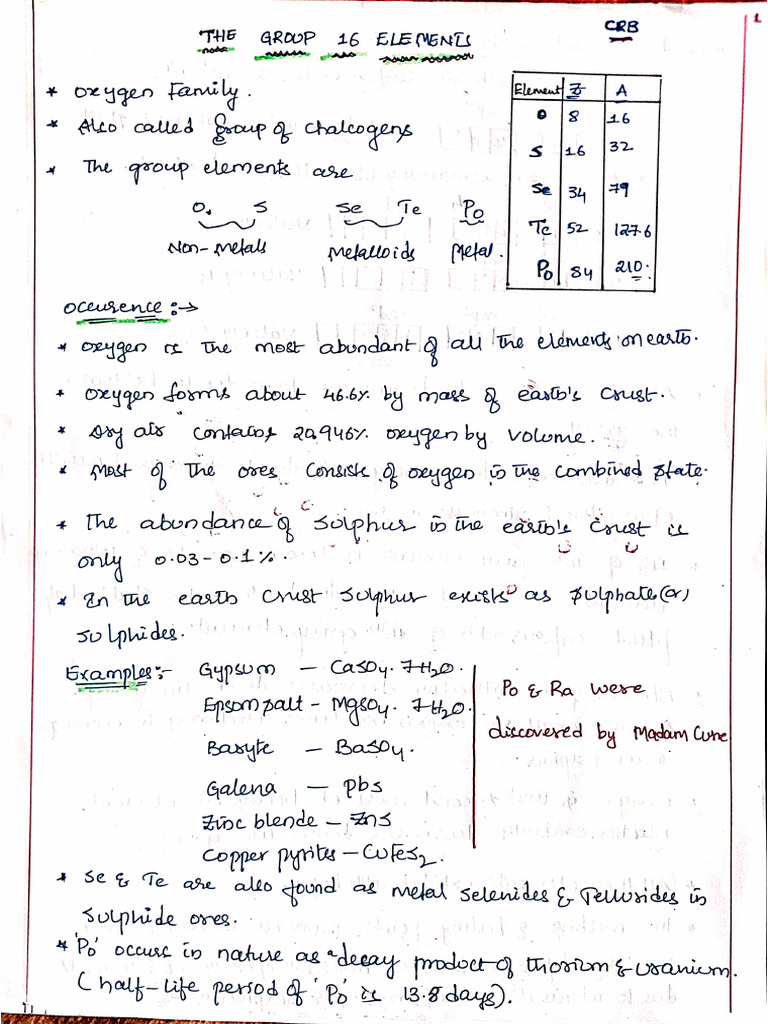 CRB
1
THE GROUP 16 ELEMENTS
* Oxygen Family.
* Also called Group of Chalcogens
* The group elements are
O, S Se Te Po
Non-Metals Metalloids Metal.
Element Z A
O 8 16
S 16 32
Se 34 79
Te 52 127.6
Po 84 210.
Occurence :→
* Oxygen is the most abundant of all the elements on earth.
* Oxygen forms about 46.6% by mass of earth's crust.
* Dry air contains 20.946% oxygen by volume.
* Most of the ores consists of oxygen in the combined state.
* The abundance of Sulphur in the earth's crust is
only 0.03-0.1%.
* In the earth crust sulphur exists as sulphate (or)
sulphides.
Examples:- Gypsum – CaSO4. 7H2O.
Epsom salt – MgSO4. 7H2O.
Baryte – BaSO4.
Galena – Pbs
Zinc blende – ZnS
Copper pyrites – CuFeS2.
Po & Ra were
discovered by Madam Curie
* Se & Te are also found as metal selenides & Tellurides in
sulphide ores.
* 'Po' occurs in nature as a decay product of thorium & uranium.
(half-life period of 'Po' is 13.8 days).